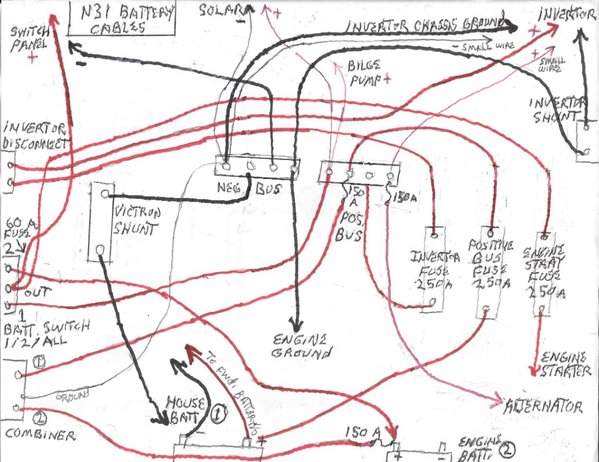 N31 BATTERY
CABLES
SOLAR
-
+
INVERTOR CHASSIS GROUND
INVERTOR
SWITCH
PANEL
+
-
- SMALL WIRE
+
SMALL
WIRE
BILGE
PUMP +
INVERTOR
SHUNT
INVERTOR
DISCONNECT
NEG. BUS
150
A
150A
POS.
BUS
VICTRON
SHUNT
60 A
FUSE
2
OUT
1
BATT. SWITCH
1/2/ALL
INVERTOR
FUSE
250A
POSITIVE
BUS
FUSE
250A
ENGINE
START
FUSE
250A
ENGINE
GROUND
ENGINE
STARTER
ALTERNATOR
1
GROUND
2
COMBINER
HOUSE
BATT.
1
TO FWD. BATTERIES
-
+
150 A
+
-
ENGINE
BATT. 2